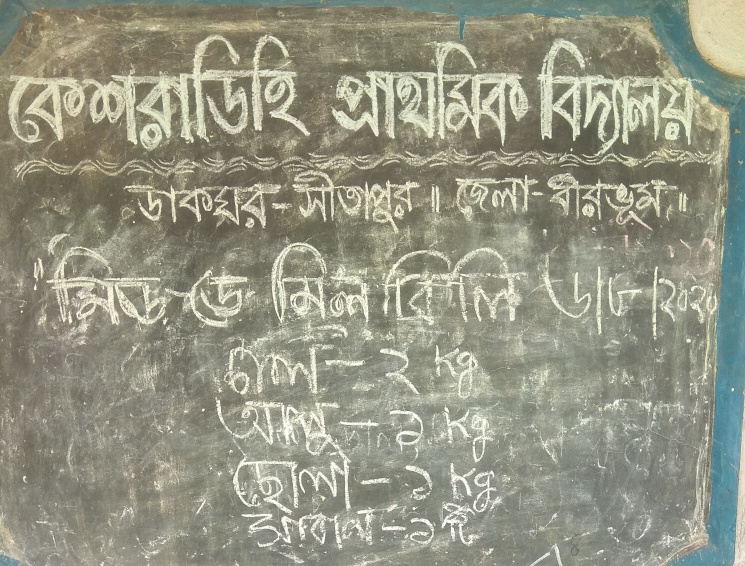 কেশরাডিহি প্রাথমিক বিদ্যালয়
ডাকঘর - সীতাপুর ॥ জেলা - বীরভূম ॥
"মিড ডে মিল বিলি ৬/৮/২০২০
চাল - ২ kg
আলু - ১ kg
ছোলা - ১ kg
সাবান - ১টি